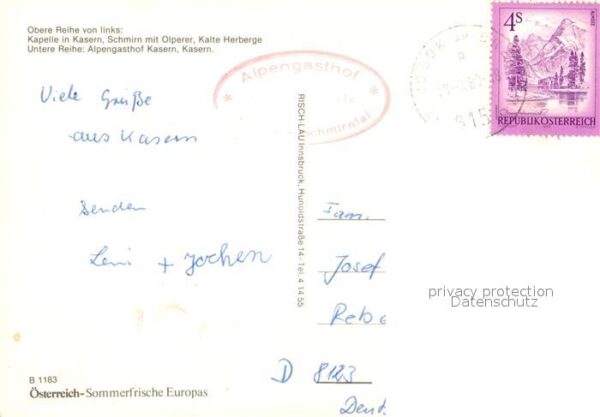 Obere Reihe von links:
Kapelle in Kasern, Schmirn mit Olperer, Kalte Herberge
Untere Reihe: Alpengasthof Kasern, Kasern.
Viele Grüße
aus Kasern
senden
Leni + Jochen
* Alpengasthof *
Schmirntal
RISCH-LAU Innsbruck, Hunoldstraße 14 - Tel. 4 14 55
4S
REPUBLIK ÖSTERREICH
Fam.
Josef
privacy protection
Datenschutz
D 8123
B 1183
Österreich-Sommerfrische Europas